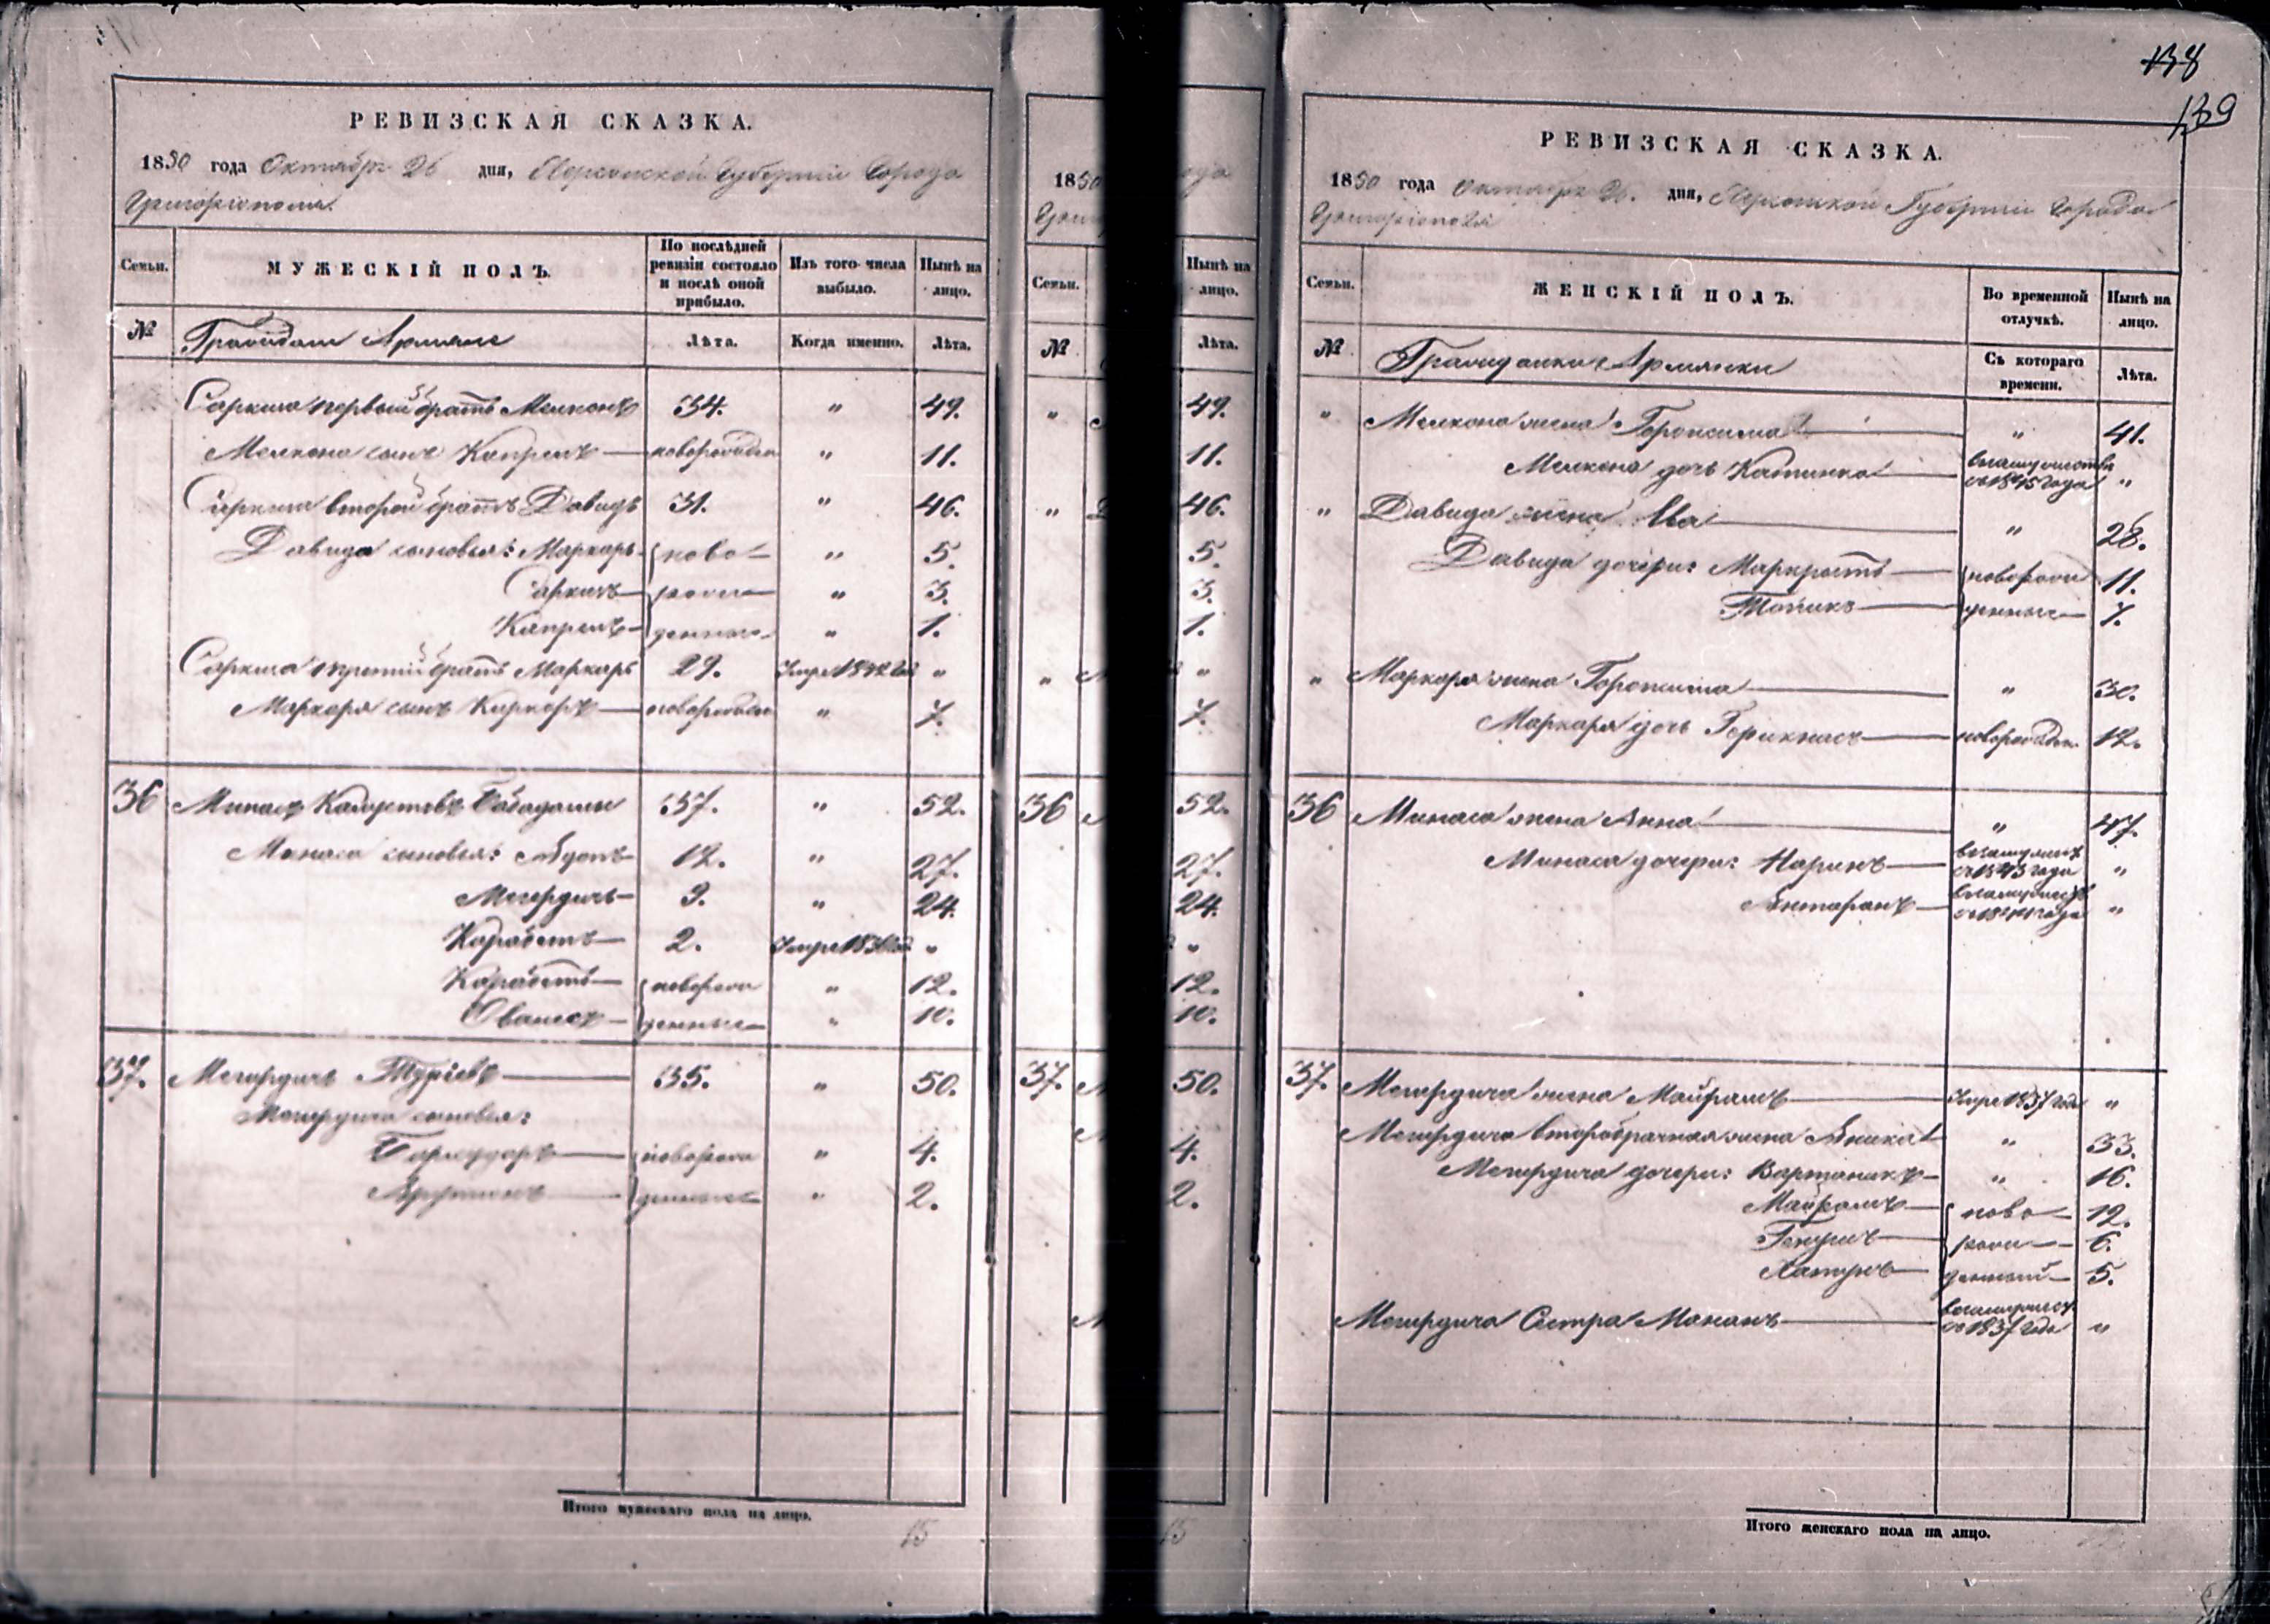 РЕВИЗСКАЯ СКАЗКА.
1850 года Октября 26 дня, Херсонской Губерніи Города
Григоріополя.
Семьи.
МУЖЕСКІЙ ПОЛЪ.
По послѣдней ревизіи состояло и послѣ оной прибыло.
Изъ того числа выбыло.
Нынѣ на лицо.
№ Граждане Армяне Лѣта. Когда именно. Лѣта.
Саркиса первый братъ Мелконъ 34. " 49.
Мелкона сынъ Капрелъ новорожден " 11.
Саркиса второй братъ Давидъ 31. " 46.
Давида сыновья: Маркаръ ново " 5.
Саркисъ рож " 3.
Капрелъ денные " 1.
Саркиса третій братъ Маркаръ 29. Умре 1842 год "
Маркара сынъ Киркоръ новорожден " 7.
36 Минасъ 37. " 52.
Минаса сыновья: 12. " 27.
Мегердичъ 9. " 24.
Карабетъ 2. Умре "
Карабетъ новорож " 12.
Ованесъ денные " 10.
37. Мегердичъ 35. " 50.
Мегердича сыновья:
новорож " 4.
Арутинъ денные " 2.
Итого мужескаго пола на лицо.
15
1850
Семьи.
№
"
"
"
36
37.
Нынѣ на лицо.
Лѣта.
49.
11.
46.
5.
3.
1.
"
7.
52.
27.
24.
"
12.
10.
50.
4.
2.
15
138
139
РЕВИЗСКАЯ СКАЗКА.
1850 года Октября 26. дня, Херсонской Губерніи Города
Григоріополя
Семьи.
ЖЕНСКІЙ ПОЛЪ.
Во временной отлучкѣ.
Нынѣ на лицо.
№ Гражданки Армянки Съ котораго времени. Лѣта.
" Мелкона жена " 41.
Мелкона дочь Катинка взамужствѣ съ 1845 года "
" Давида жена Ева " 28.
Давида дочери: Маркритъ новорож 11.
денные 7.
" Маркара жена " 30.
Маркара дочь новорожден 12.
36 Минаса жена Анна " 47.
Минаса дочери: съ 1843 года "
"
37. Мегердича жена Майрамъ Умре 1837 года "
Мегердича второбрачная жена " 33.
Мегердича дочери: " 16.
Майрамъ ново 12.
рож 6.
денный 5.
Мегердича Сестра съ 1837 года "
Итого женскаго пола на лицо.